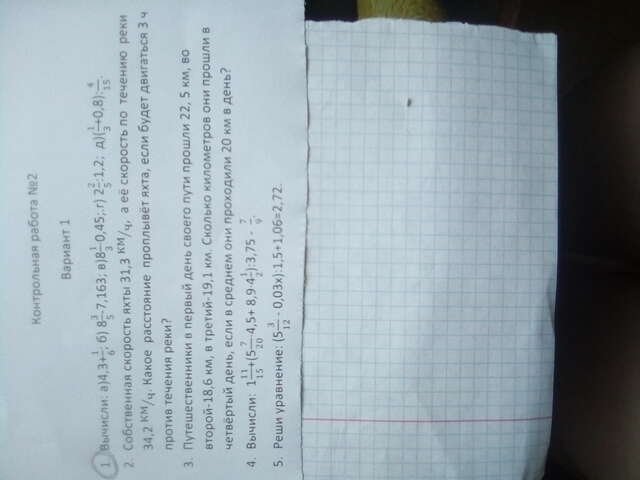 Контрольная работа №2
Вариант 1
1. Вычисли: а)4,3+1/6; б) 8 3/5-7,163; в)8 1/3·0,45;.г) 2 2/5:1,2; д)(1/3+0,8):4/15.
2. Собственная скорость яхты 31,3 км/ч, а её скорость по течению реки
34,2 км/ч. Какое расстояние проплывёт яхта, если будет двигаться 3 ч
против течения реки?
3. Путешественники в первый день своего пути прошли 22, 5 км, во
второй-18,6 км, в третий-19,1 км. Сколько километров они прошли в
четвёртый день, если в среднем они проходили 20 км в день?
4. Вычисли: 1 11/15+(5 7/20·4,5+ 8,9·4 1/2):3,75 - 7/9.
5. Реши уравнение: (5 3/12 - 0,03x):1,5+1,06=2,72.